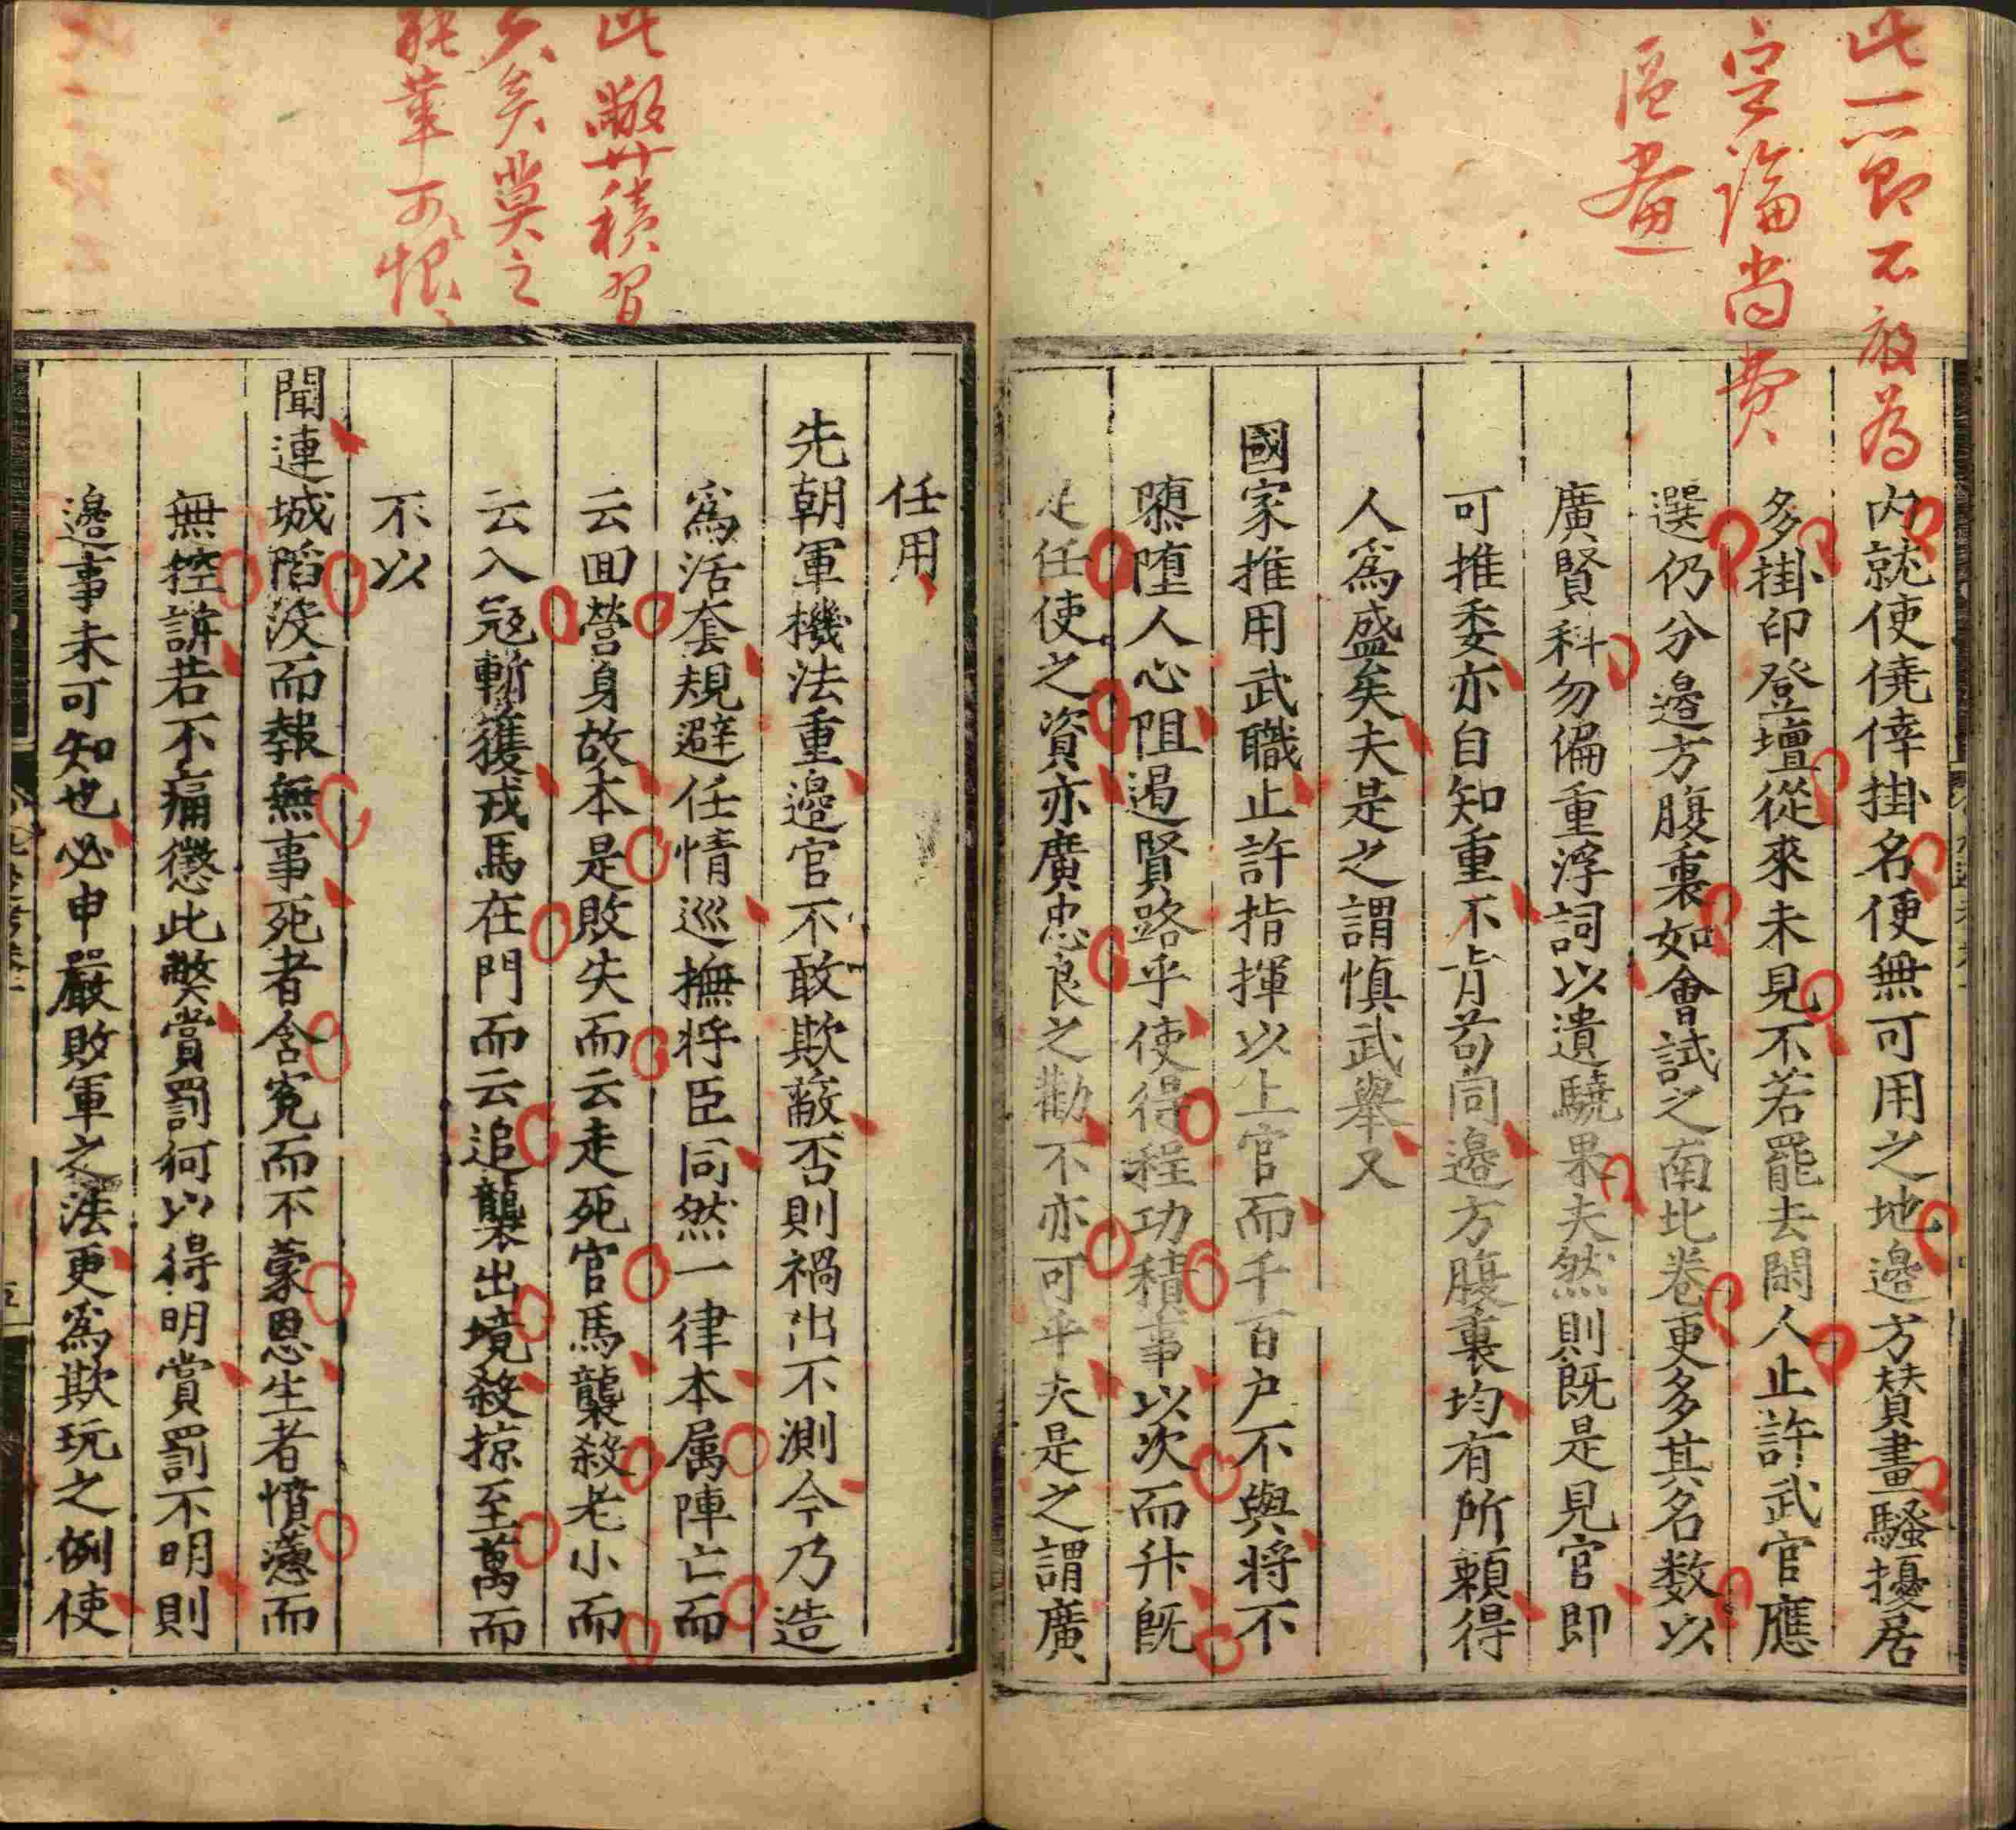 此一節不敢爲
空論尚費
區畫
内就使僥倖掛名便無可用之地邉方賛畫騷擾居
多掛印登壇從來未見不若罷去閑人止許武官應
選仍分邉方腹裏如會試之南北卷更多其名数以
廣賢科勿偏重浮詞以遺驍果夫然則既是見官即
可推委亦自知重不肯苟同邉方腹裏均有所頼得
人爲盛矣夫是之謂慎武舉又
國家推用武職止許指揮以上官而千百户不與將不
隳堕人心阻遏賢路乎使得程功積事以次而升既
足任使之資亦廣忠良之勸不亦可乎夫是之謂廣
此敝積習
久矣莫之
能革可恨
任用
先朝軍機法重邉官不敢欺蔽否則禍出不測今乃造
爲活套規避任情巡撫將臣同然一律本属陣亡而
云回營身故本是敗失而云走死官馬襲殺老小而
云入寇斬獲戎馬在門而云追襲出境殺掠至萬而
不以
聞連城陷没而報無事死者含寃而不蒙恩生者憤懣而
無控訴若不痛懲此獘賞罰何以得明賞罰不明則
邉事未可知也必申嚴敗軍之法更爲欺玩之例使